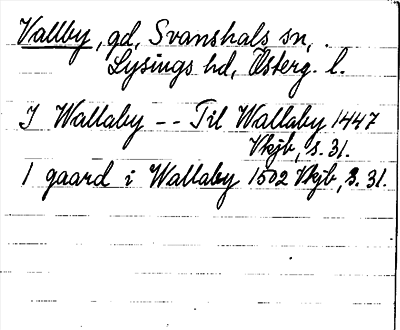 Vallby, gd, Svanshals sn,
Lysings hd, Österg. l.
I Wallaby -- Til Wallaby 1447
Vkjb, s. 31.
1 gaard i Wallaby 1502 Vkjb, s. 31.